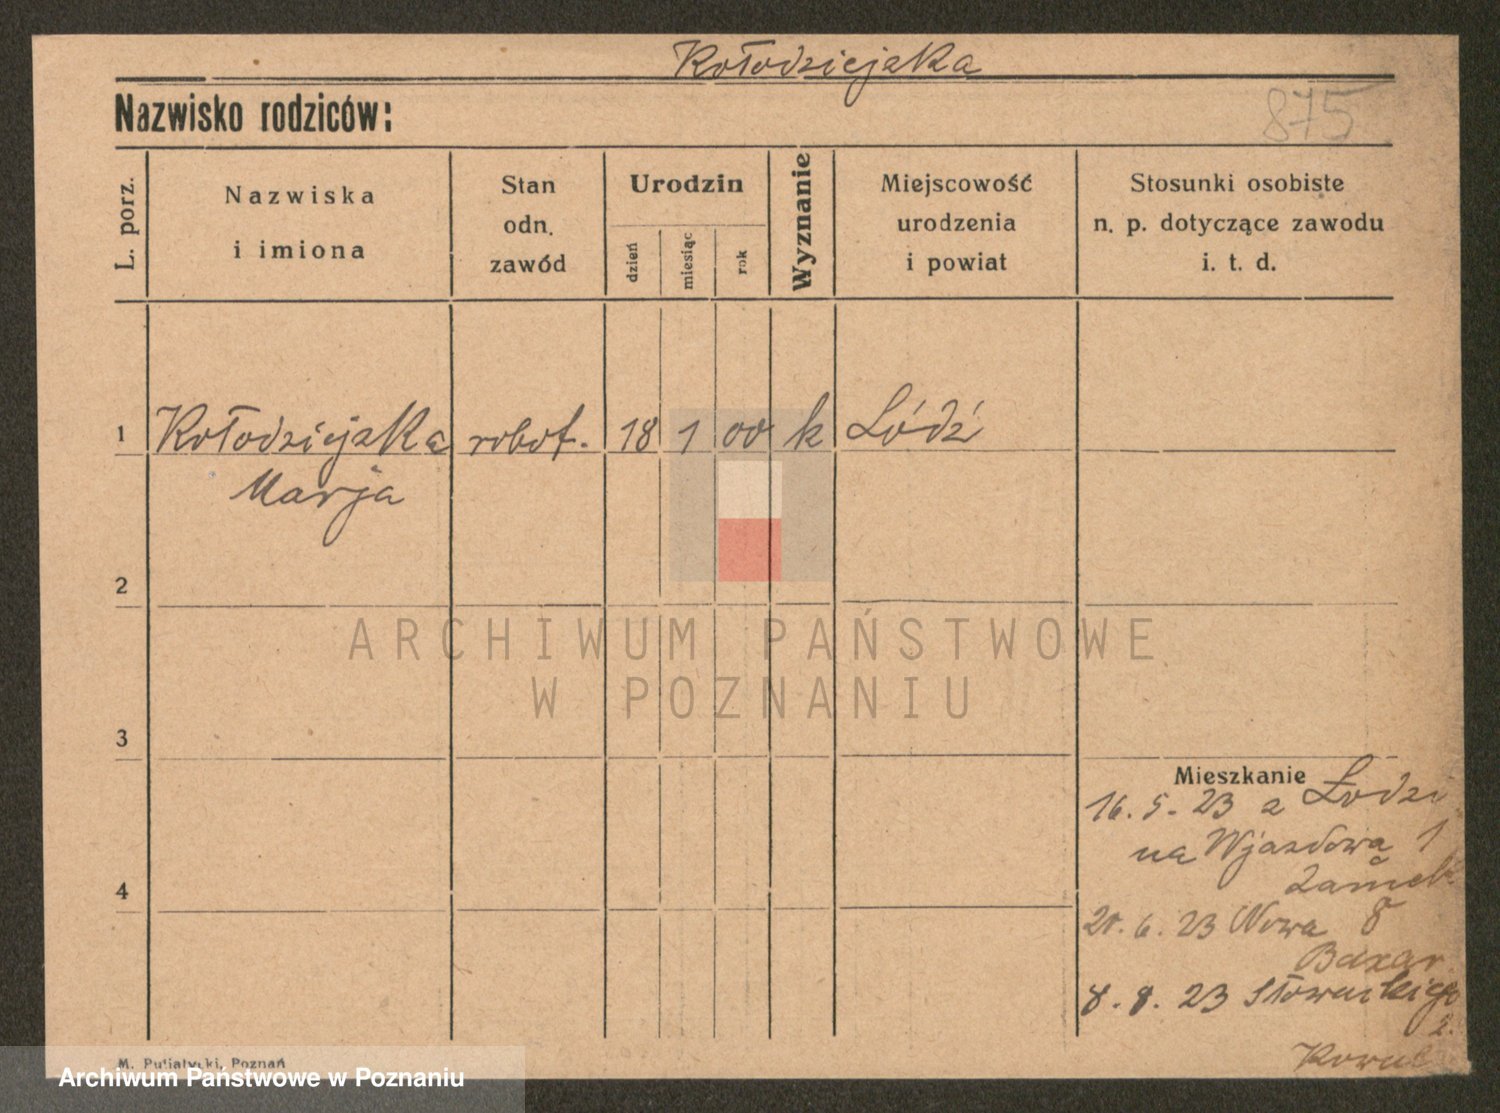 Kołodziejaka
Nazwisko rodziców:
875
L. porz.
Nazwiska
i imiona
Stan
odn.
zawód
Urodzin
dzień
miesiąc
rok
Wyznanie
Miejscowość
urodzenia
i powiat
Stosunki osobiste
n. p. dotyczące zawodu
i. t. d.
1 Kołodziejaka robot. 18 1 00 k Łódź
Marja
2
ARCHIWUM PAŃSTWOWE
W POZNANIU
3
Mieszkanie
16. 5. 23 z Łodzi
na Wjazdowa 1
4
20. 6. 23 Nowa 8
Bazar
8. 8. 23 Słowackiego
2.
M. Putiatycki, Poznań
Archiwum Państwowe w Poznaniu